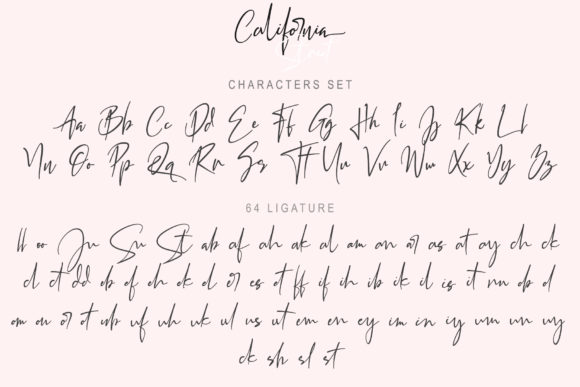 California
Strait
CHARACTERS SET
Aa Bb Cc Dd Ee Ff Gg Hh Ii Jj Kk Ll
Oo Pp Qq Rr Ss Tt Uu Vv Ww Xx Yy Zz
64 LIGATURE
ll oo Ju Su St ab af ah ak al am an ar as at ay ch ck
cl ct dd eb ef eh ek el er es et ff if ih ib ik il is it nn ob
om on or ot ub uf uh uk ul us ut em en ey im in iy um un uy
ck sh sl st